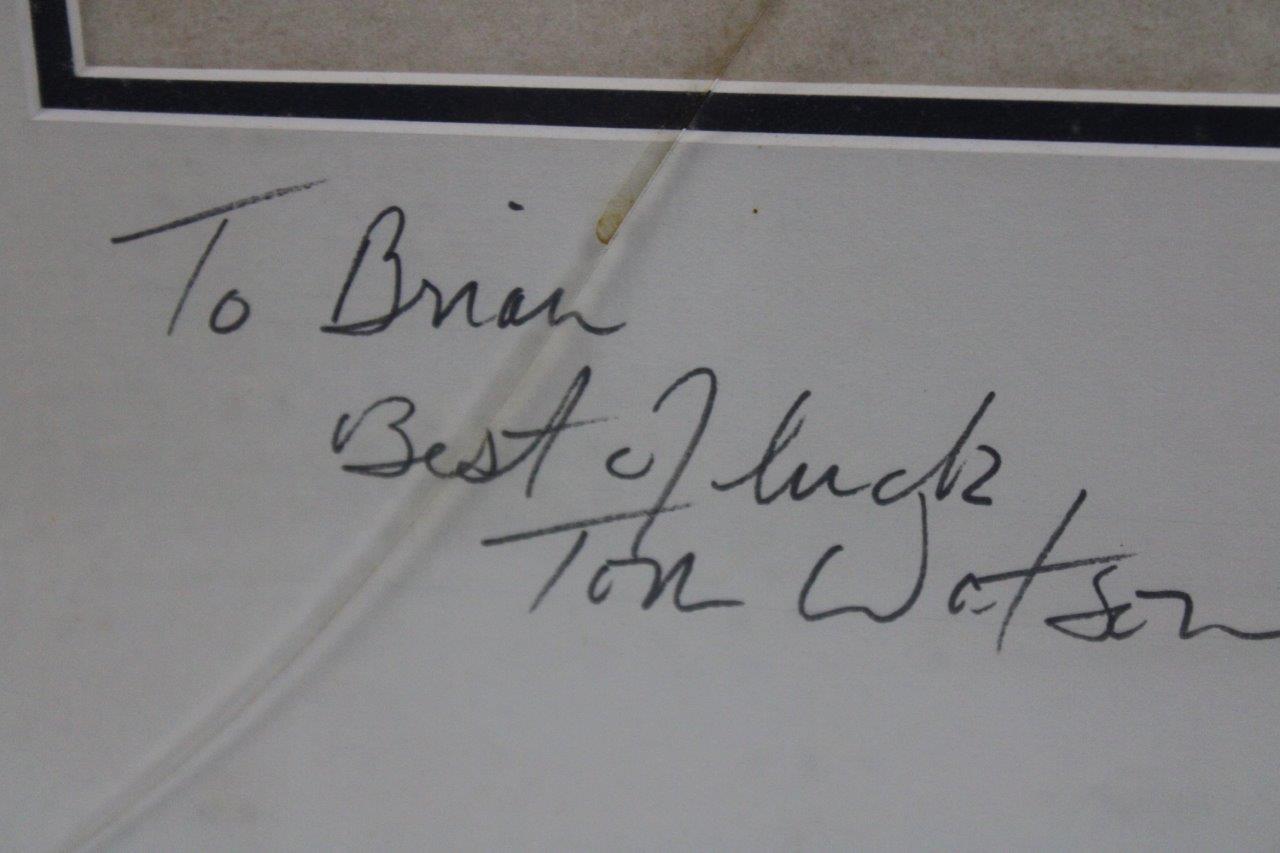 To Brian
Best of luck
Tom Watson